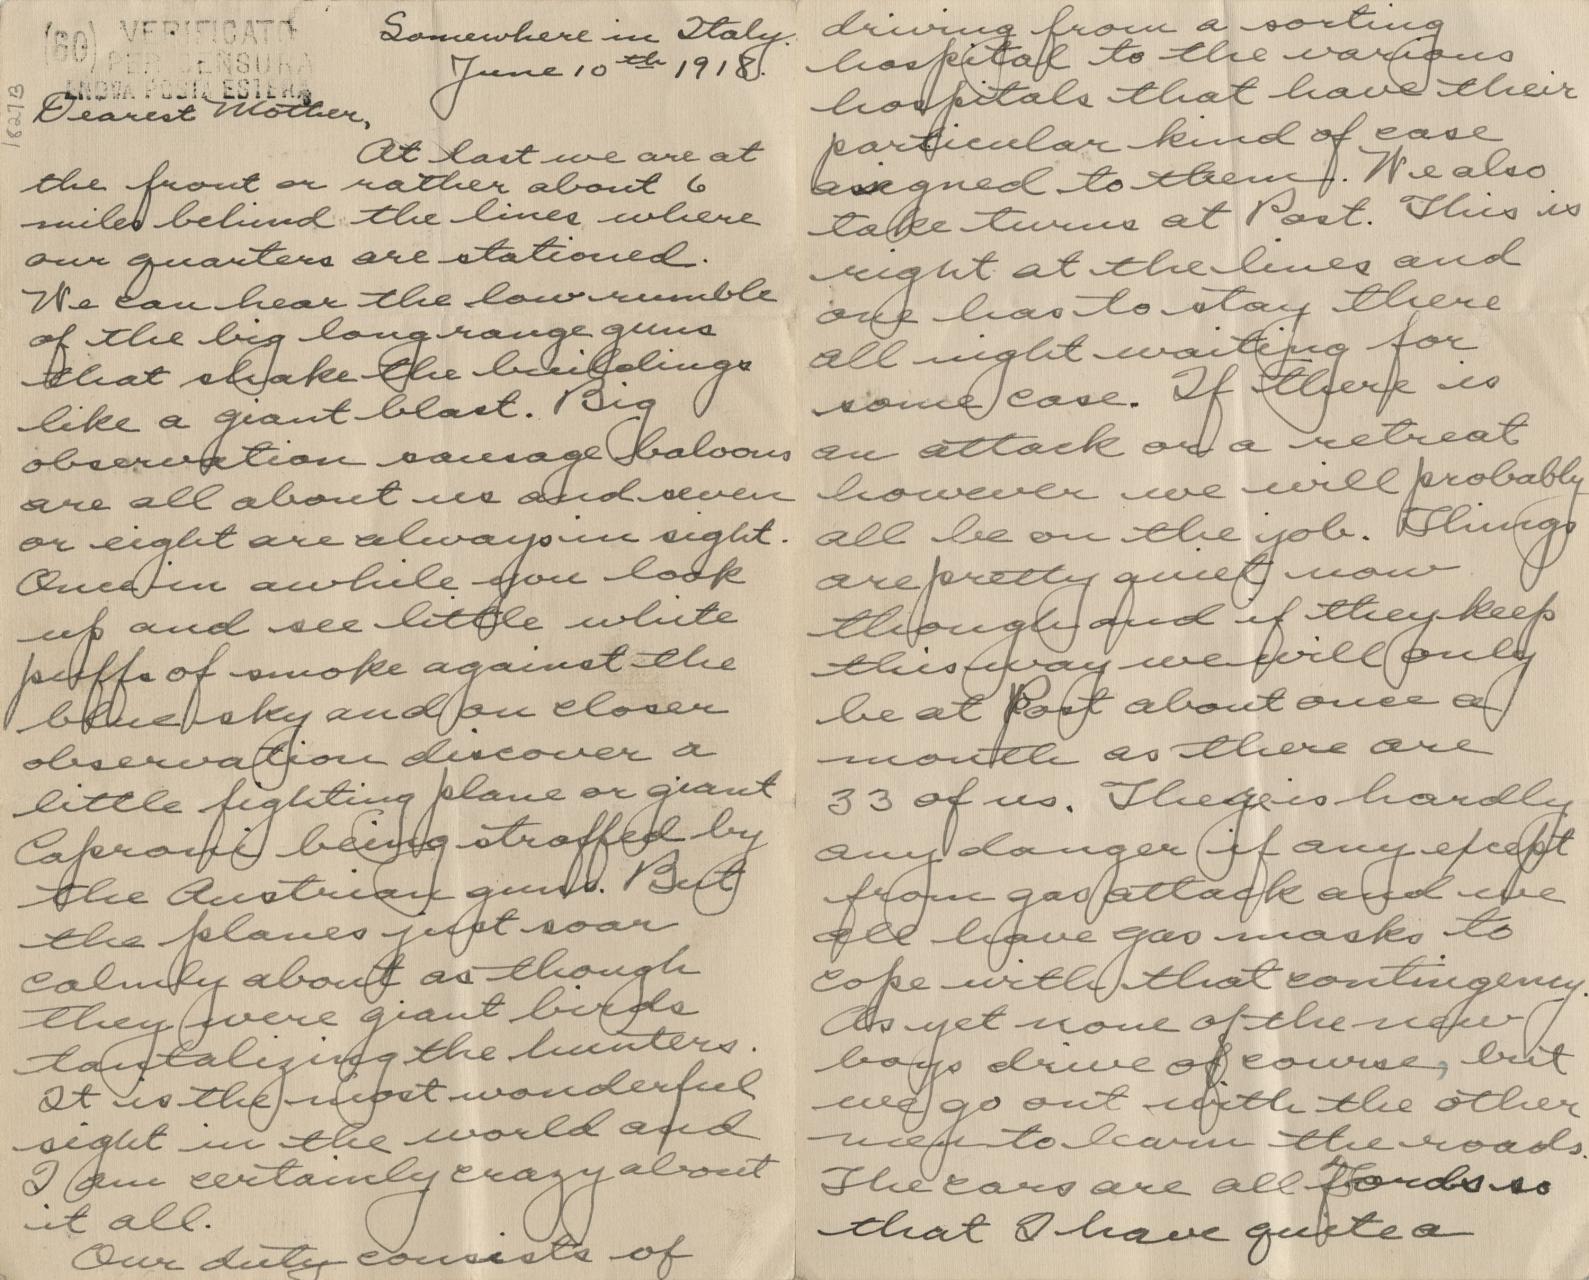 (60) VERIFICATO
PER CENSURA
POSTA ESTERA
1827B
Somewhere in Italy.
June 10th 1918.
Dearest Mother,
At last we are at
the front or rather about 6
miles behind the lines where
our quarters are stationed.
We can hear the low rumble
of the big long range guns
that shake the buildings
like a giant blast. Big
observation sausage baloons
are all about us and seven
or eight are always in sight.
Once in awhile you look
up and see little white
puffs of smoke against the
blue sky and on closer
observation discover a
little fighting plane or giant
Caproni being straffed by
the Austrian guns. But
the planes just soar
calmly about as though
they were giant birds
tantalizing the hunters.
It is the most wonderful
sight in the world and
I am certainly crazy about
it all.
Our duty consists of
driving from a sorting
hospital to the various
hospitals that have their
particular kind of case
assigned to them. We also
take turns at Post. This is
right at the lines and
one has to stay there
all night waiting for
some case. If there is
an attack or a retreat
however we will probably
all be on the job. Things
are pretty quiet now
though and if they keep
this way we will only
be at Post about once a
month as there are
33 of us. There is hardly
any danger if any exept
from gas attack and we
all have gas masks to
cope with that contingency.
As yet none of the new
boys drive of course, but
we go out with the other
men to learn the roads.
The cars are all Fords so
that I have quite a